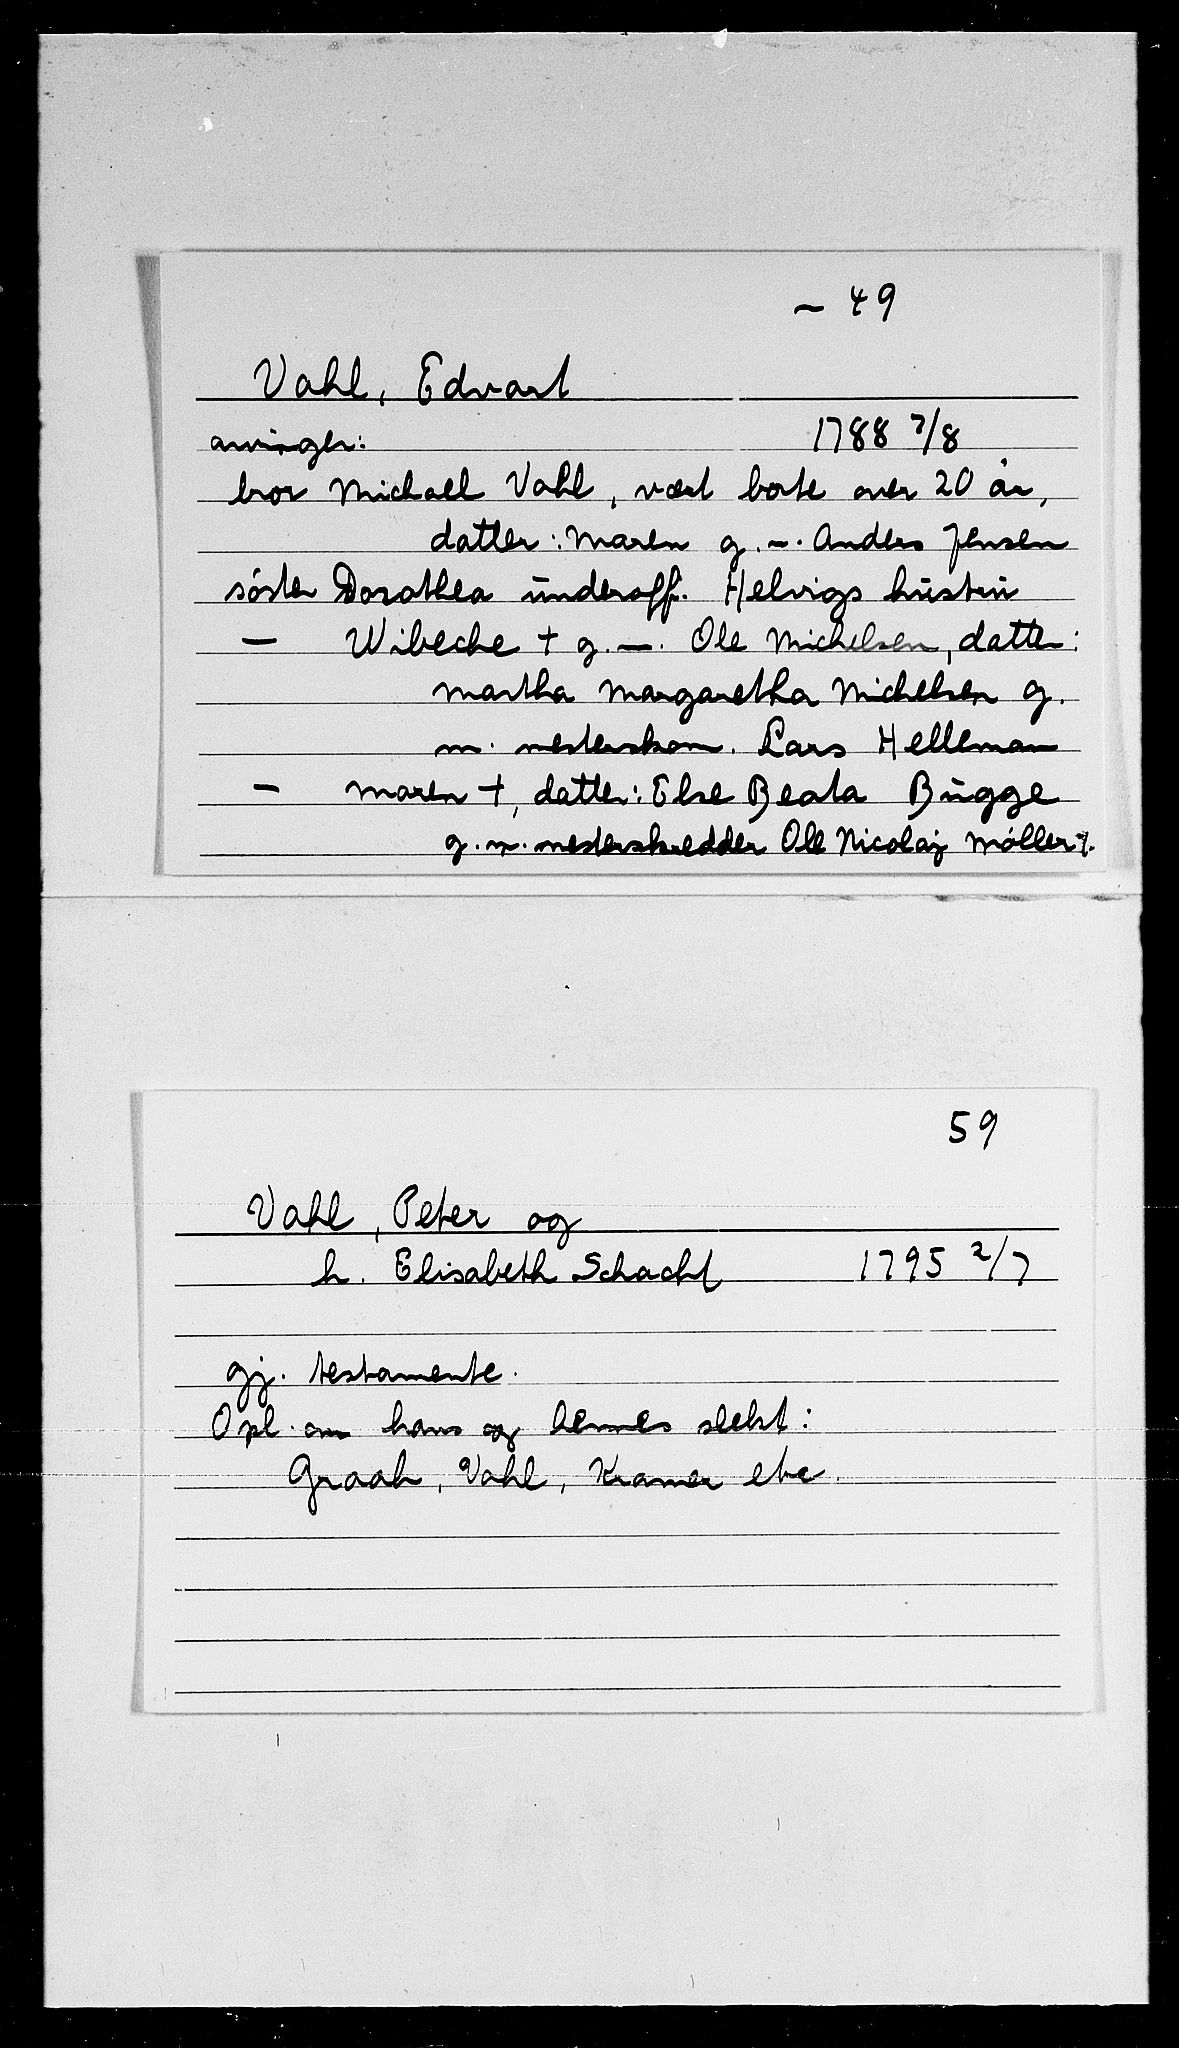 ~ 49
Vahl, Edvart
arvinger: 1788 7/8
bror Michael Vahl, vært borte over 20 år,
datter: Maren g. ~. Anders Jensen
søster Dorothea underoff. Helvigs hustru
— Wibeche † g. —. Ole Michelsen, datter:
Martha Margaretha Michelsen g.
m. mesterskom. Lars Helleman
— Maren †, datter: Else Beata Bugge
g. m. mesterskredder Ole Nicolaj Møller
59
Vahl, Peter og
h. Elisabeth Schacht 1795 2/7
gj. testamente.
Opl. om hans og hennes slekt:
Graah, Vahl, Kramer etc.